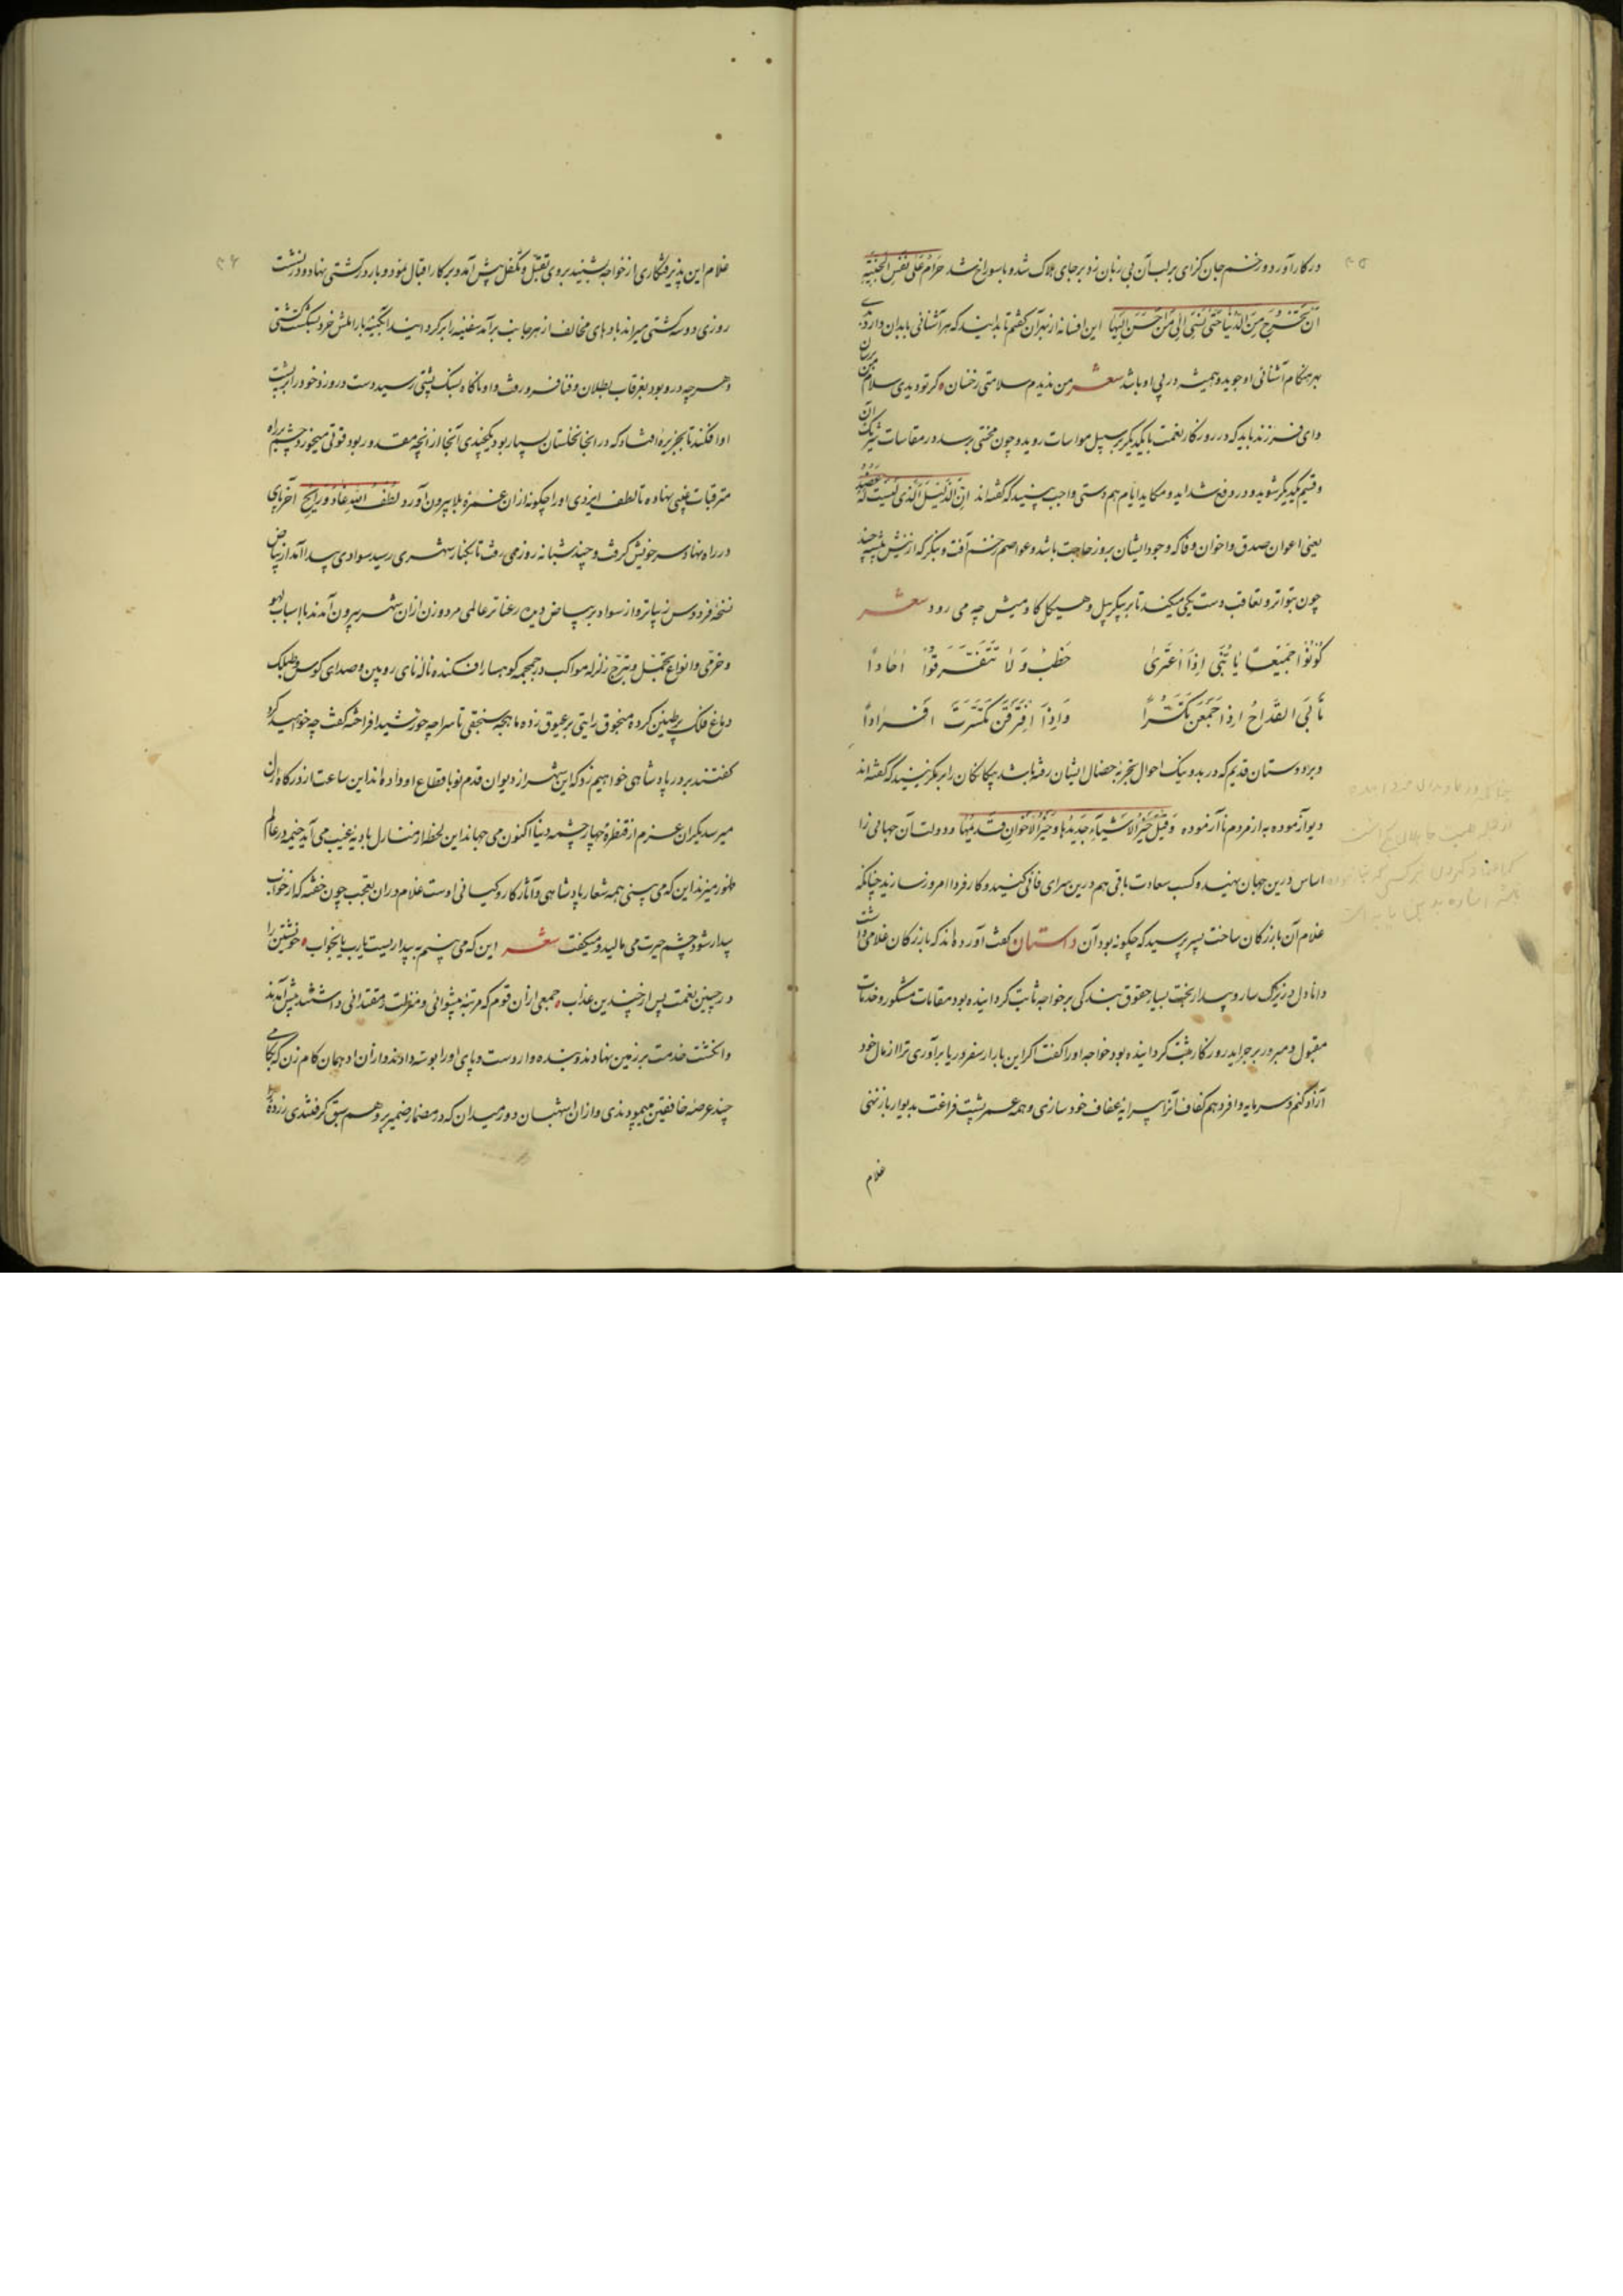 در کار آورد و زخم جان گزای بر لب آن بی زبان زد و بر جای هلاک شد و با سوراخ شد حَرَامٌ عَلَی نَفسِ الخَبیثَهِ
اَن تَخرُجَ مِنَ الدُّنیَا حَتّی تُسِیَ اِلی مَن اَحسَنَ اِلَیهَا این افسانه از بهر آن گفتم تا بدانید که هر آشنائی با بدان دارد بدی
بهر هنگام آشنائی او جوید و همیشه در پی او باشد شعر من ندیدم سلامتی زخسان گر تو دیدی سلام من برسان
و ای فرزند باید که در روزگار نعمت با یکدیگر بر سبیل مواسات روید و چون محنتی برسد در مقاسات آن شریک
و قسیم یکدیگر شوید و در دفع شداید و مکاید ایام هم دستی واجب بینید که گفته‌اند اِنَّ الذَّلیلَ الَّذی لَیسَت لَهُ عَضُدُ
یعنی اعوان صدق و اخوان وفا که وجود ایشان بروز حاجت باشد و عواصم زخم آفت و بنگر که از نیش پشهٔ چند
چون بتواتر و تعاقب دست یکی میکنند تا بر پیکر پیل و هیکل گاومیش چه می رود شعر
کُونُوا جَمیعًا یَا بُنَیَّ اِذَا اعتَرَی خَطبٌ وَلَا تَتَفَرَّقُوا اٰحَادًا
تَأبَی القِدَاحُ اِذَا جُمِعنَ تَکَسُّرًا وَاِذَا افتَرَقنَ تَکَسَّرَت اَفرَادًا
و بر دوستان قدیم که در بد و نیک احوال تجربهٔ خصال ایشان رفته باشد بیگانگان را بر مگزینید که گفته‌اند
دیو آزموده به از مردم ناآزموده وَ قیلَ خَیرُ الاَشیَاءِ جَدیدُهَا وَ خَیرُ الاِخوَانِ قَدیمُهَا و دولت آن جهانی را
اساس درین جهان نهید و کسب سعادت باقی هم درین سرای فانی کنید و کار فردا امروز سازید چنانکه
غلام آن بازرگان ساخت پسر پرسید که چگونه بود آن داستان گفت آورده‌اند که بازرگان غلامی داشت
دانا دل و زیرک سار و بیدار بخت بسیار حقوق بندگی بر خواجه ثابت گردانیده بود و مقامات مشکور و خدمات
مقبول و مبرور بر جراید روزگار مثبت گردانیده بود خواجه او را گفت اگر این بار از سفر دریا برآوری ترا از مال خود
آزاد کنم و سرمایه وافر دهم که کفاف آنرا پیرایهٔ عفاف خود سازی و همه عمر پشت فراغت بدیوار باز نهی
غلام
غلام این پذیرفتگاری از خواجه بشنید بروی تقبل و تکفل پیش آمد و بر کار اقبال نمود و بار در کشتی نهاد و در نشست
روزی دو سه کشتی میراند بادهای مخالف از هر جانب برآمد سفینه را برگردانید و آبگینهٔ بار املش خرد بشکست کشتی
و هر چه درو بود بغرقاب بطلان و فنا فرو رفت و او ناگاه بسنگ پشتی رسید دست درو زد و خود را بر پشت
او افکند تا بجزیرهٔ افتاد که در آنجا نخلستان بسیار بود یکچندی آنجا از آنچه مقدور بود قوتی میخورد و چشم بر راه
مترقبات غیبی نهاده تا لطف ایزدی او را چگونه از آن غمزهٔ بلا بیرون آورد لُطفُ اللهِ غَادٍ وَ رَائِحٌ آخر پای
در راه نهاد و سر خویش گرفت و چند شبانه روز می رفت تا بکنار شهری رسید سوادی پیدا آمد از بیاض
نسخهٔ فردوس زیباتر و از سواد بر بیاض دیده رعناتر عالمی مرد و زن از آن شهر بیرون آمدند با اسباب لهو
و خرمی و انواع تجمل و تبرج زلزلهٔ مواکب در جمجمهٔ کوهسار افکنده نالهٔ نای رویین و صدای کوس و طبلک
دماغ فلک پر طنین کرده منجوق رایتی بر عیوق زده ماهچهٔ سنجقی تا سراچهٔ خورشید افراخته گفت چه خواهید کرد
گفتند بر در پادشاهی خواهیم زد که این شهر از دیوان قدم نو باقطاع او داده‌اند این ساعت از درگاه ازل
میرسد یکران عزم از قنطرهٔ چهار چشمه دنیا اکنون می جهاند این لحظه از منازل بادیهٔ غیب می آید خیمه در عالم
ظهور میزند این که می بینی همه شعار پادشاهی و آثار کار و کیائی اوست غلام در آن تعجب چون خفته که از خواب
بیدار شود چشم حیرت می مالید و میگفت شعر این که می بینم به بیداریست یا رب یا بخواب خویشتن را
در چنین نعمت پس از چندین عذاب جمعی از آن قوم که مرتبهٔ پیشوائی و منزلت و مقتدائی داشتند پیش آمدند
و انگشت خدمت بر زمین نهادند و بنده وار دست و پای او را بوسه دادند و از آن ادهمان گام زن که بگامی
چند عرصهٔ خافقین پیمودندی و از آن اشهبان دور میدان که در مضمار ضمیر بر وهم سبق گرفتندی زردهٔ